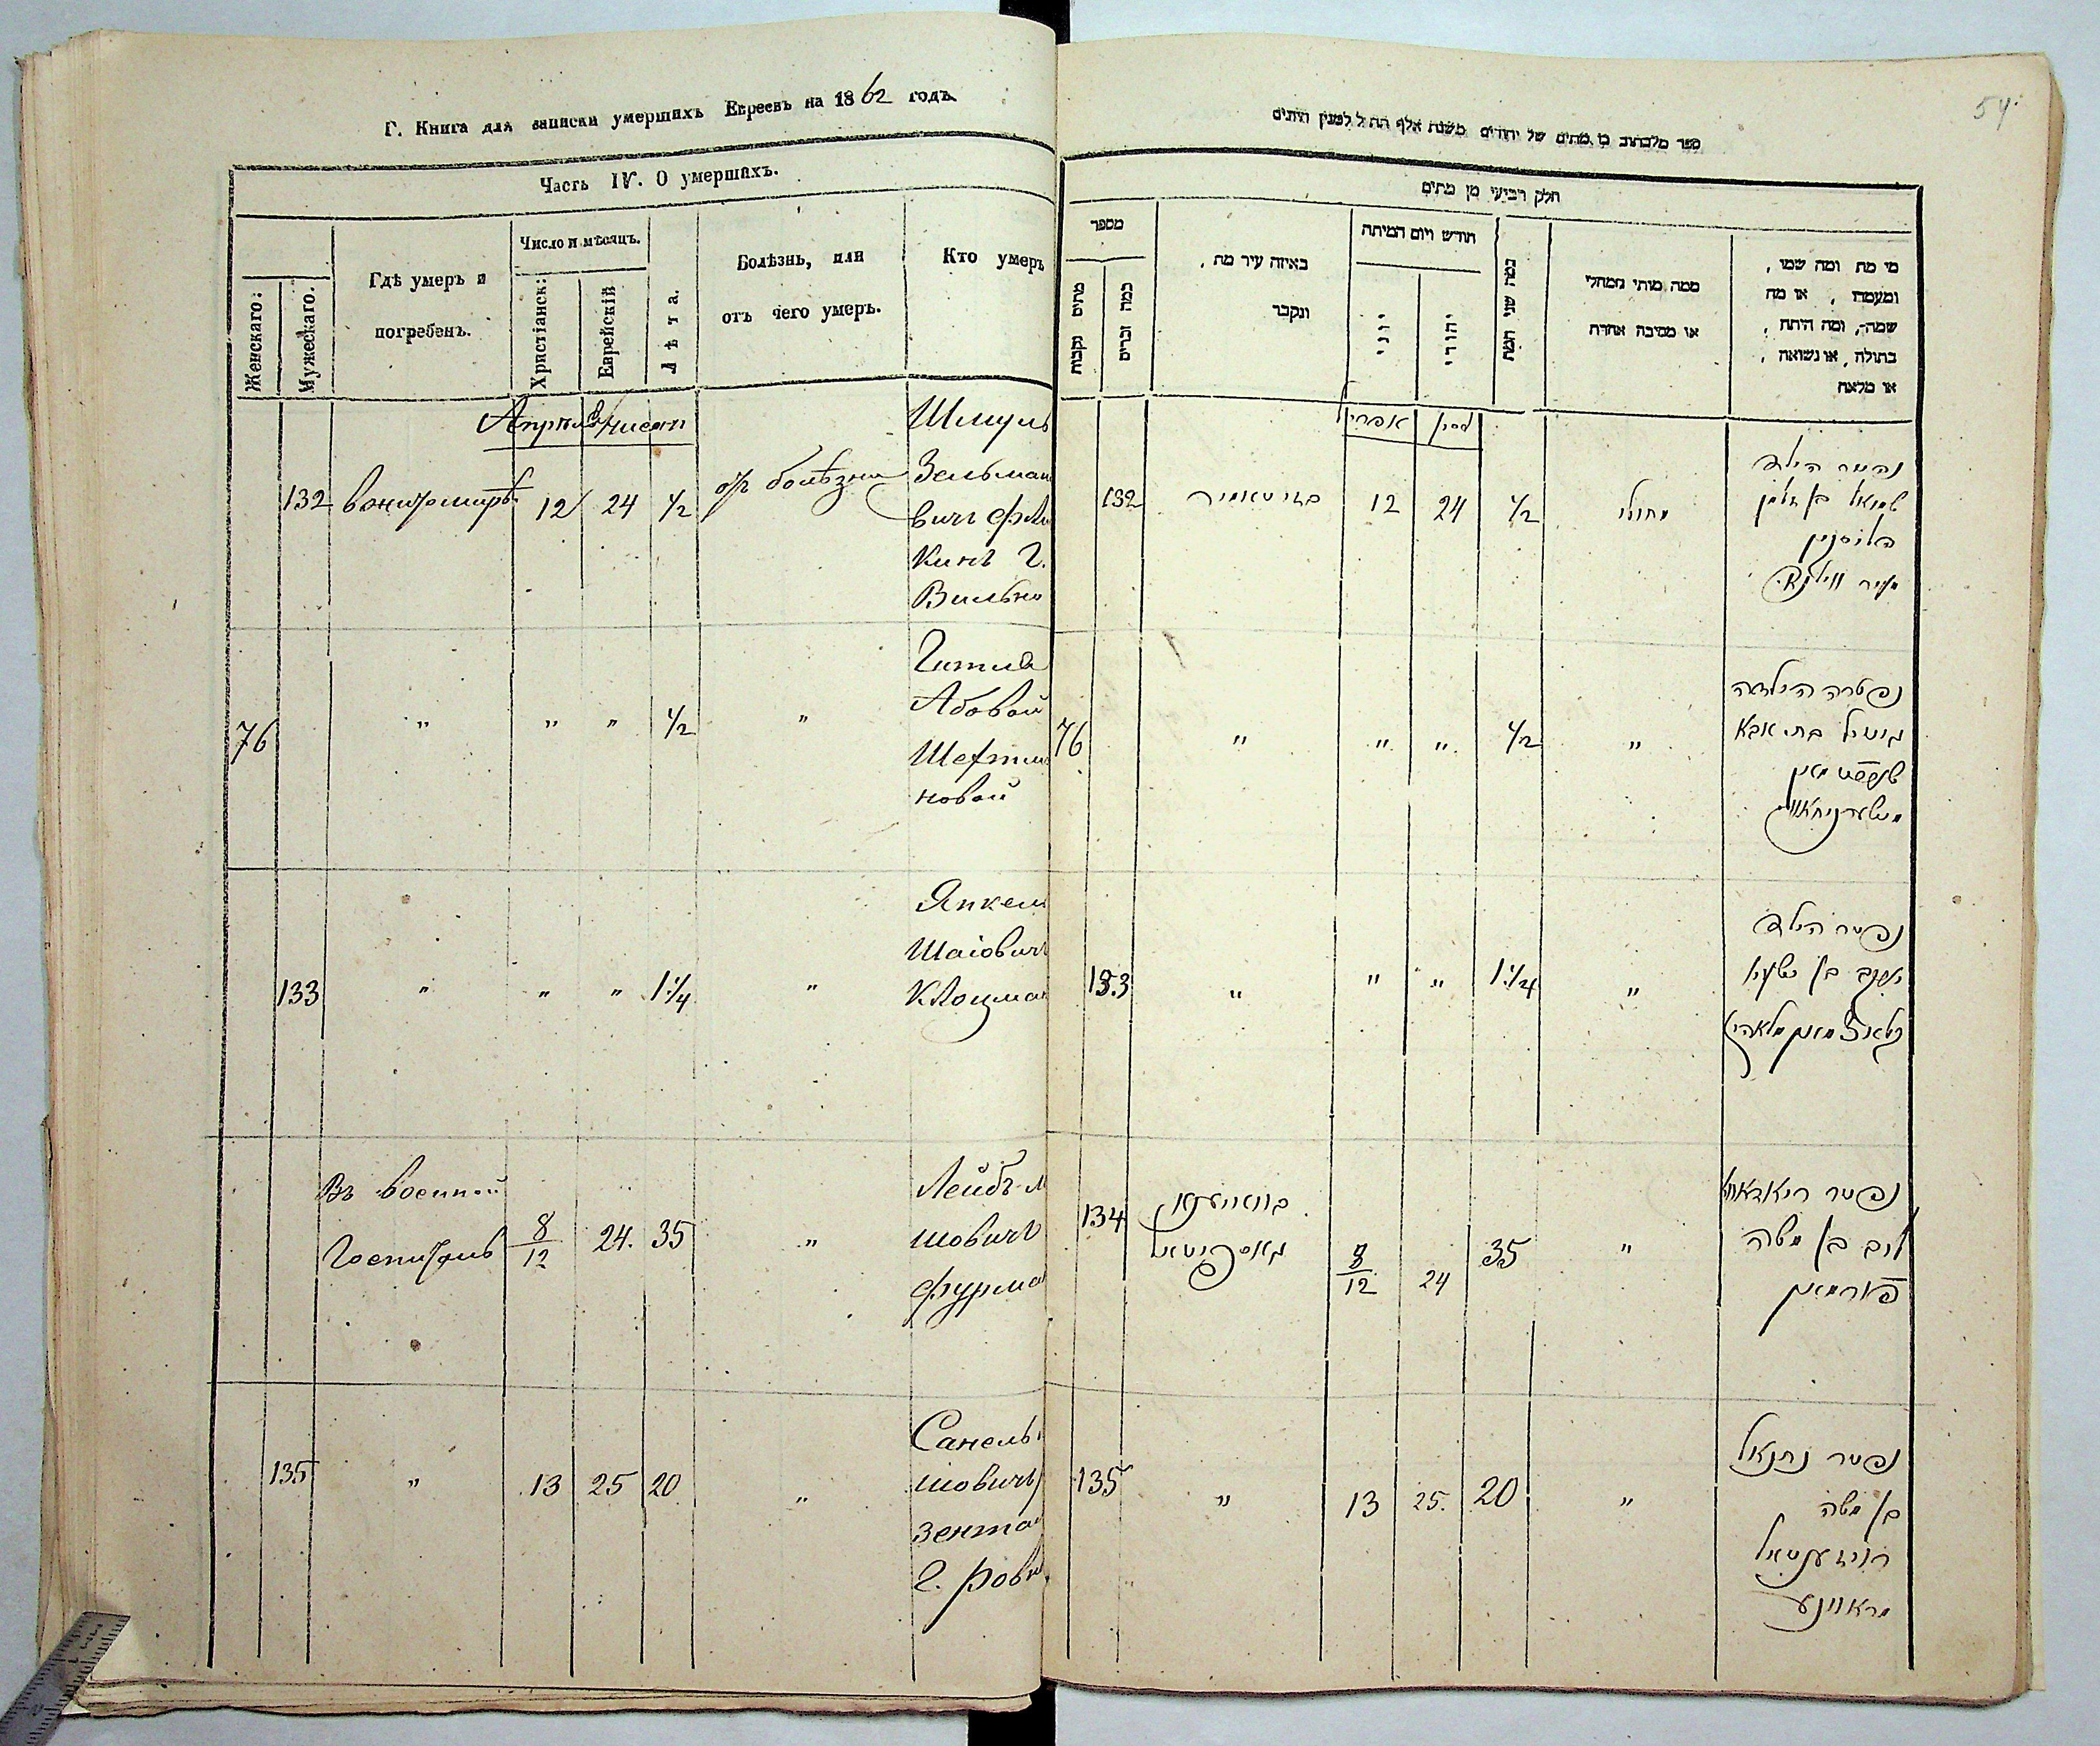 Г. Книга для записки умершихъ Евреевъ на 1862 годъ.
Часть IV. О умершихъ.
Женскаго:
Мужескаго.
Гдѣ умеръ и
погребенъ.
Число и мѣсяцъ.
Христіанск:
Еврейскій
Лѣта.
Болѣзнь, или
отъ чего умеръ.
Кто умеръ
Апрель Нисан
132 в Житомирѣ 12 24 1/2 от болѣзни
Шмуль
Зельман
вичъ
кинъ г.
Вильно
76 " " " 1/2 "
Гитля
Абовой
новой
133 " " " 1 1/4 "
Янкель
Шаіовичъ
Клоцман
Въ военной
Госпиталь
8/12 24. 35 "
Лейбъ М
шовичъ
Фурма
135 " 13 25 20 "
Санель
шовичъ
зента
г. Ровн
54
ספר מלכתוב בו מתים של יהודים משנת אלף תתיל למנין היתים
חלק רביעי מן מתים
מספר
מתים נקבות
כמה זכרים
באיזה עיר מת,
ונקבר
חודש ויום המיתה
יוני
יהודי
כמה שני המת
ממה מותי ממחלי
או מסיבה אחרת
מי מת ומה שמו,
ומעמדו, או מה
שמה, ומה היתה,
בתולה, או נשואה,
או מלאה
אפריל ניסן
132 בזיטאמיר 12 24 1/2 מחולי
נפטר הילד
שמואל בן זלמן
מעיר ווילנא
76 " " " 1/2 "
נפטרה הילדה
גיטיל בת אבא
133 " " " 1 1/4 "
נפטר הילד
יעקב בן ישעיא
קלאצמאן
134
בוואיענא
גאספיטאל
8/12 24 35 "
נפטר
ליב בן משה
פורמאן
135 " 13 25. 20 "
נפטר נתנאל
בן משה
רויזענטאל
מראוונע